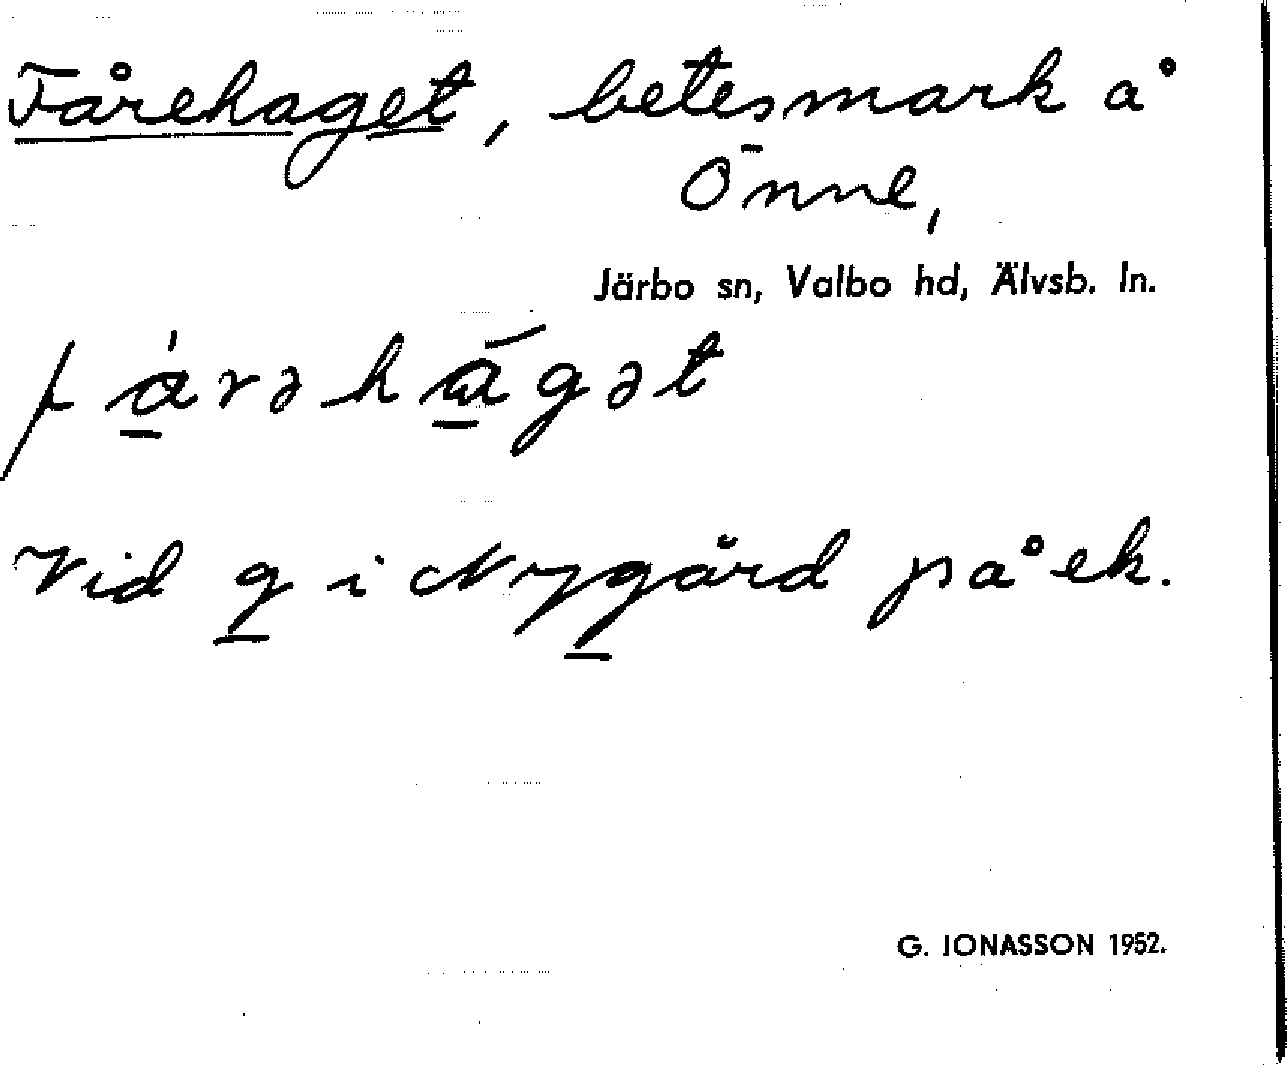 Fårehaget, betesmark å
Önne,
Järbo sn, Valbo hd, Älvsb. ln.
fårəhāgət
Vid g i Nygård på ek.
G. JONASSON 1952.